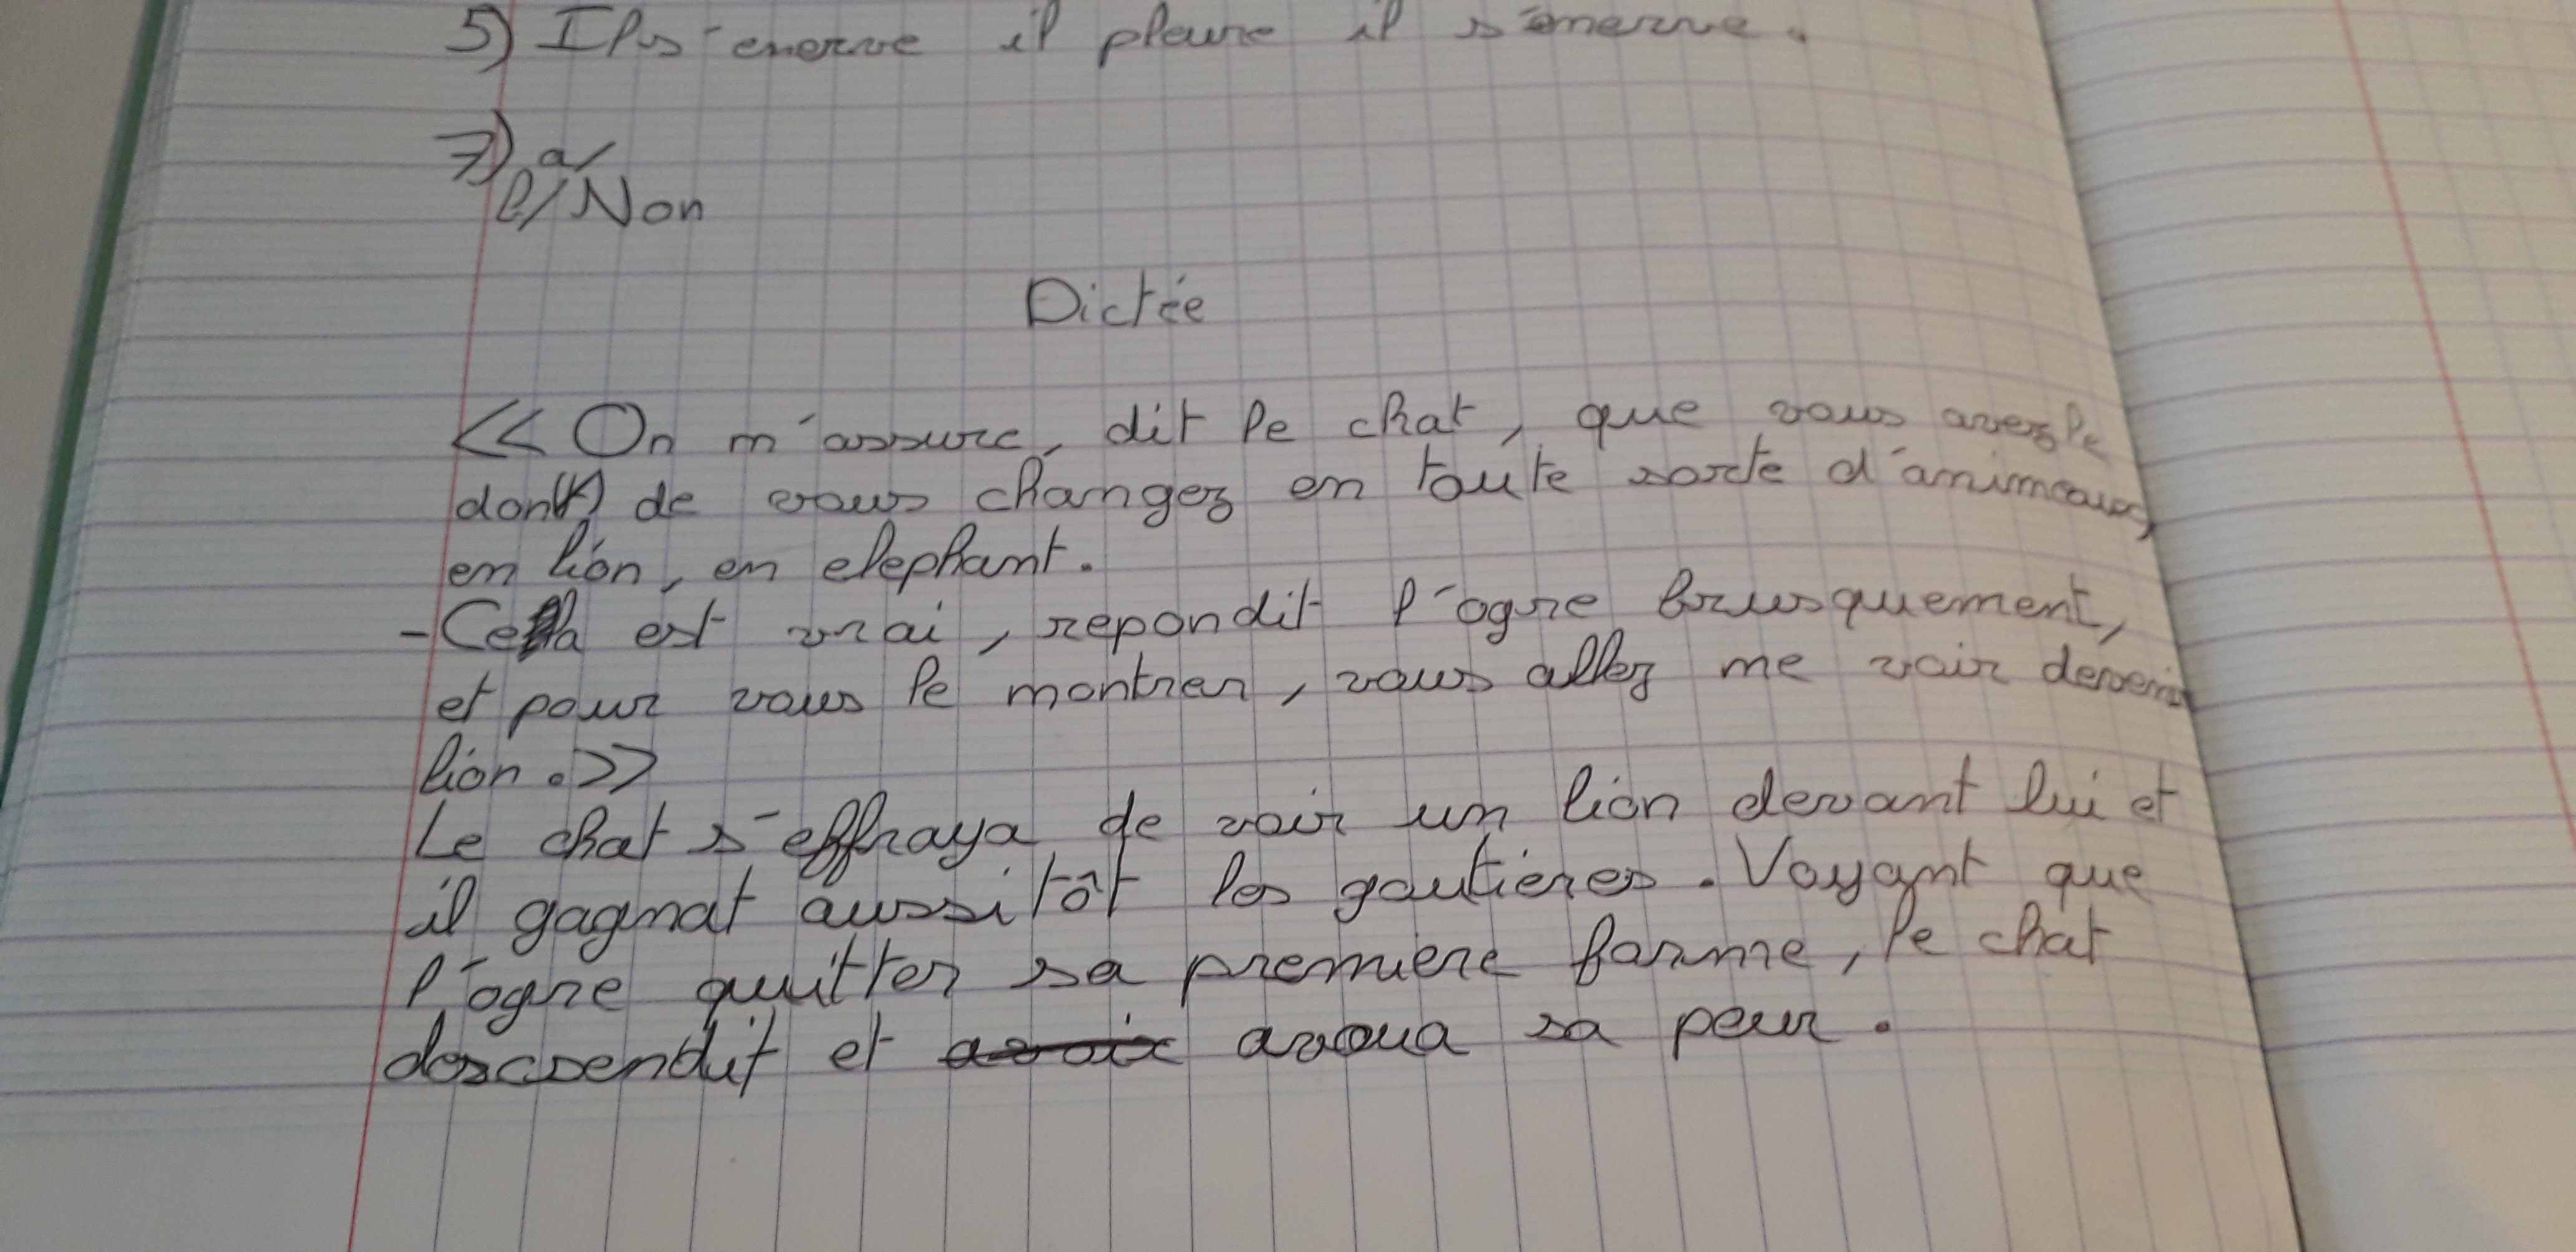 5) Il s'enerve il pleure il s'enerve.
7) a/
b/ Non
Dictée
<< On m'assure, dit le chat, que vous avez le
don(t) de vous changez en toute sorte d'animeaux,
en lion, en elephant.
- Cela est vrai, repondit l'ogre brusquement,
et pour vous le montrer, vous allez me voir devenir
lion. >>
Le chat s'effraya de voir un lion devant lui et
il gagnat aussitôt les goutieres. Voyant que
l'ogre quitter sa premiere forme, le chat
descsendit et avoua sa peur.